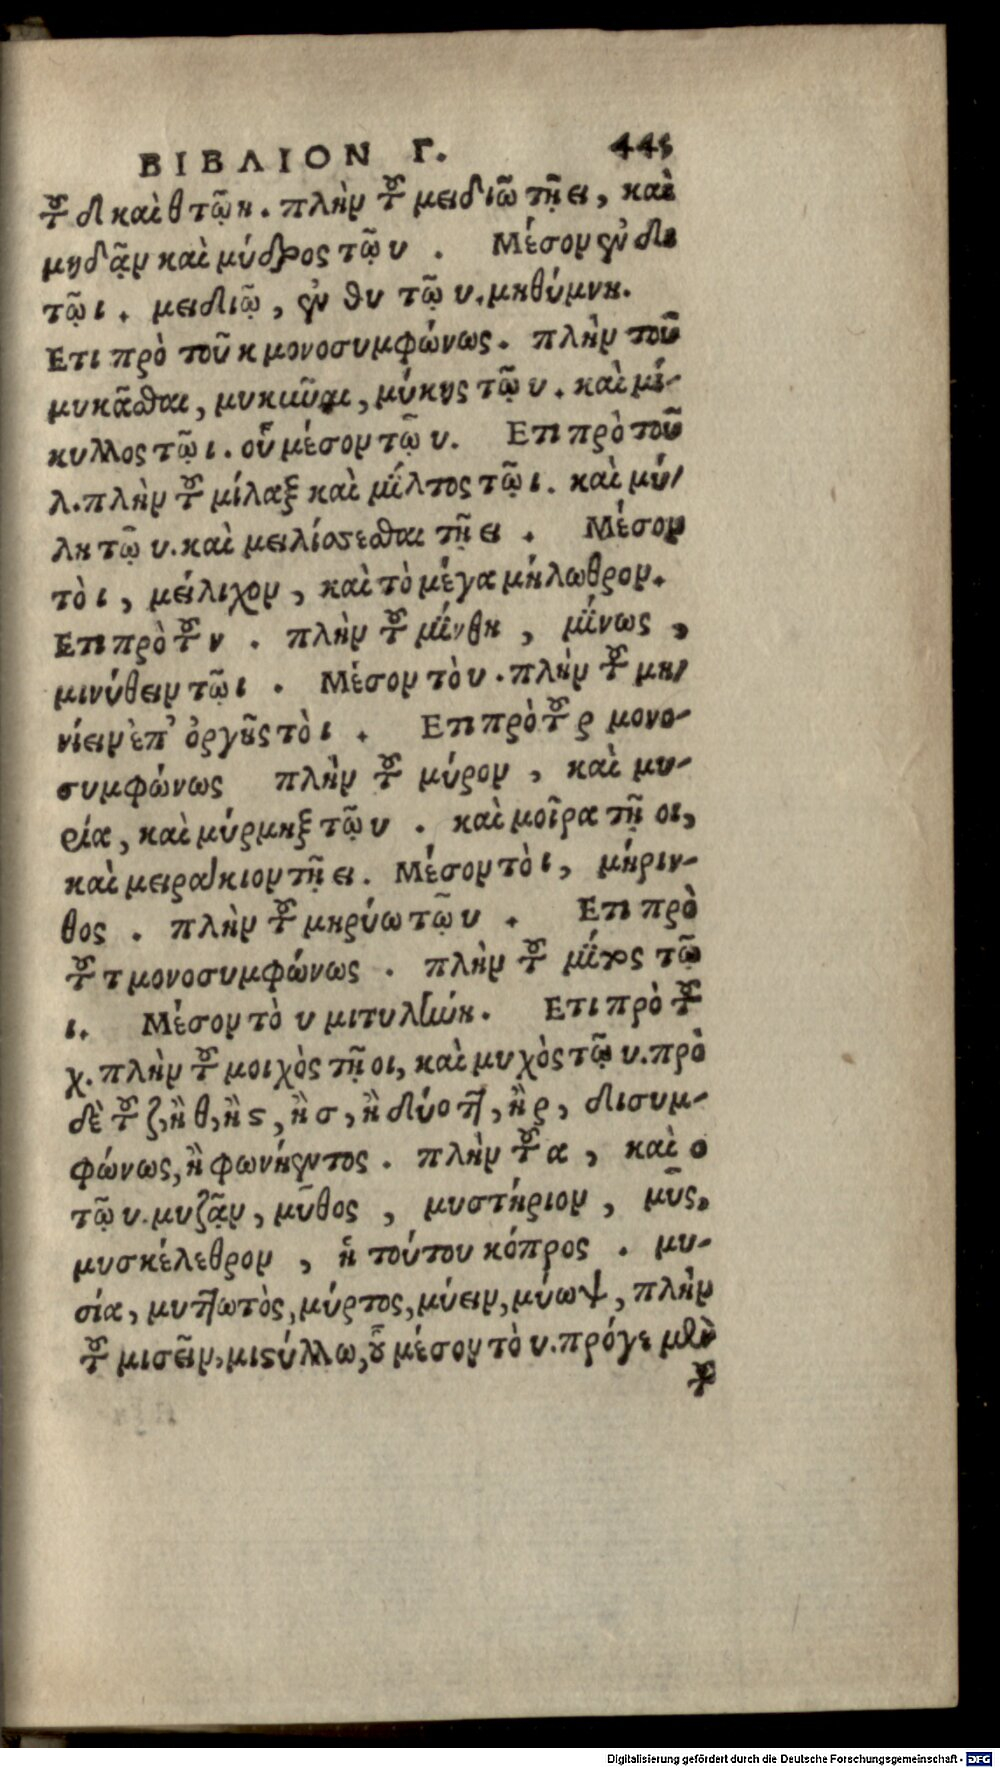 ΒΙΒΛΙΟΝ Γ. 445
τοῦ δ καὶ θ τῷ η. πλὴν τοῦ μειδιῶ τῇ ει, καὶ
μυδᾷν καὶ μύδρος τῷ υ. Μέσον ἐν δὲ
τῷ ι. μειδιῷ, ἐν θυ τῷ υ. μηθύμνη.
Ετι πρὸ τοῦ κ μονοσυμφώνως. πλὴν τοῦ
μυκᾶσθαι, μυκῆναι, μύκης τῷ υ. καὶ μί-
κυλλος τῷ ι. οὗ μέσον τῷ υ. Ετι πρὸ τοῦ
λ. πλὴν τοῦ μίλαξ καὶ μίλτος τῷ ι. καὶ μύ-
λη τῷ υ. καὶ μειλίσσεσθαι τῇ ει. Μέσον
τὸ ι, μείλιχον, καὶ τὸ μέγα μήλωθρον.
Ετι πρὸ τοῦ ν. πλὴν τοῦ μίνθη, μίνως,
μινύθειν τῷ ι. Μέσον τὸ υ. πλὴν τοῦ μη-
νίειν ἐπ' ὀργῆς τὸ ι. Ετι πρὸ τοῦ ρ μονο-
συμφώνως πλὴν τοῦ μύρον, καὶ μυ-
ρία, καὶ μύρμηξ τῷ υ. καὶ μοῖρα τῇ οι,
καὶ μειράκιον τῇ ει. Μέσον τὸ ι, μήριν-
θος. πλὴν τοῦ μηρύω τῷ υ. Ετι πρὸ
τοῦ τ μονοσυμφώνως. πλὴν τοῦ μίτος τῷ
ι. Μέσον τὸ υ μιτυλήνη. Ετι πρὸ τοῦ
χ. πλὴν τοῦ μοιχὸς τῇ οι, καὶ μυχὸς τῷ υ. πρὸ
δὲ τοῦ ζ, ἢ θ, ἢ ϛ, ἢ σ, ἢ δύο τ, ἢ ρ, δισυμ-
φώνως, ἢ φωνήεντος. πλὴν τοῦ α, καὶ ο
τῷ υ. μυζᾷν, μῦθος, μυστήριον, μῦς,
μυσκέλεθρον, ἡ τούτου κόπρος. μυ-
σία, μυττωτὸς, μύρτος, μύειν, μύωψ, πλὴν
τοῦ μισεῖν, μιστύλλω, οὗ μέσον τὸ υ. πρόγε μὲν
τοῦ
Digitalisierung gefördert durch die Deutsche Forschungsgemeinschaft - DFG